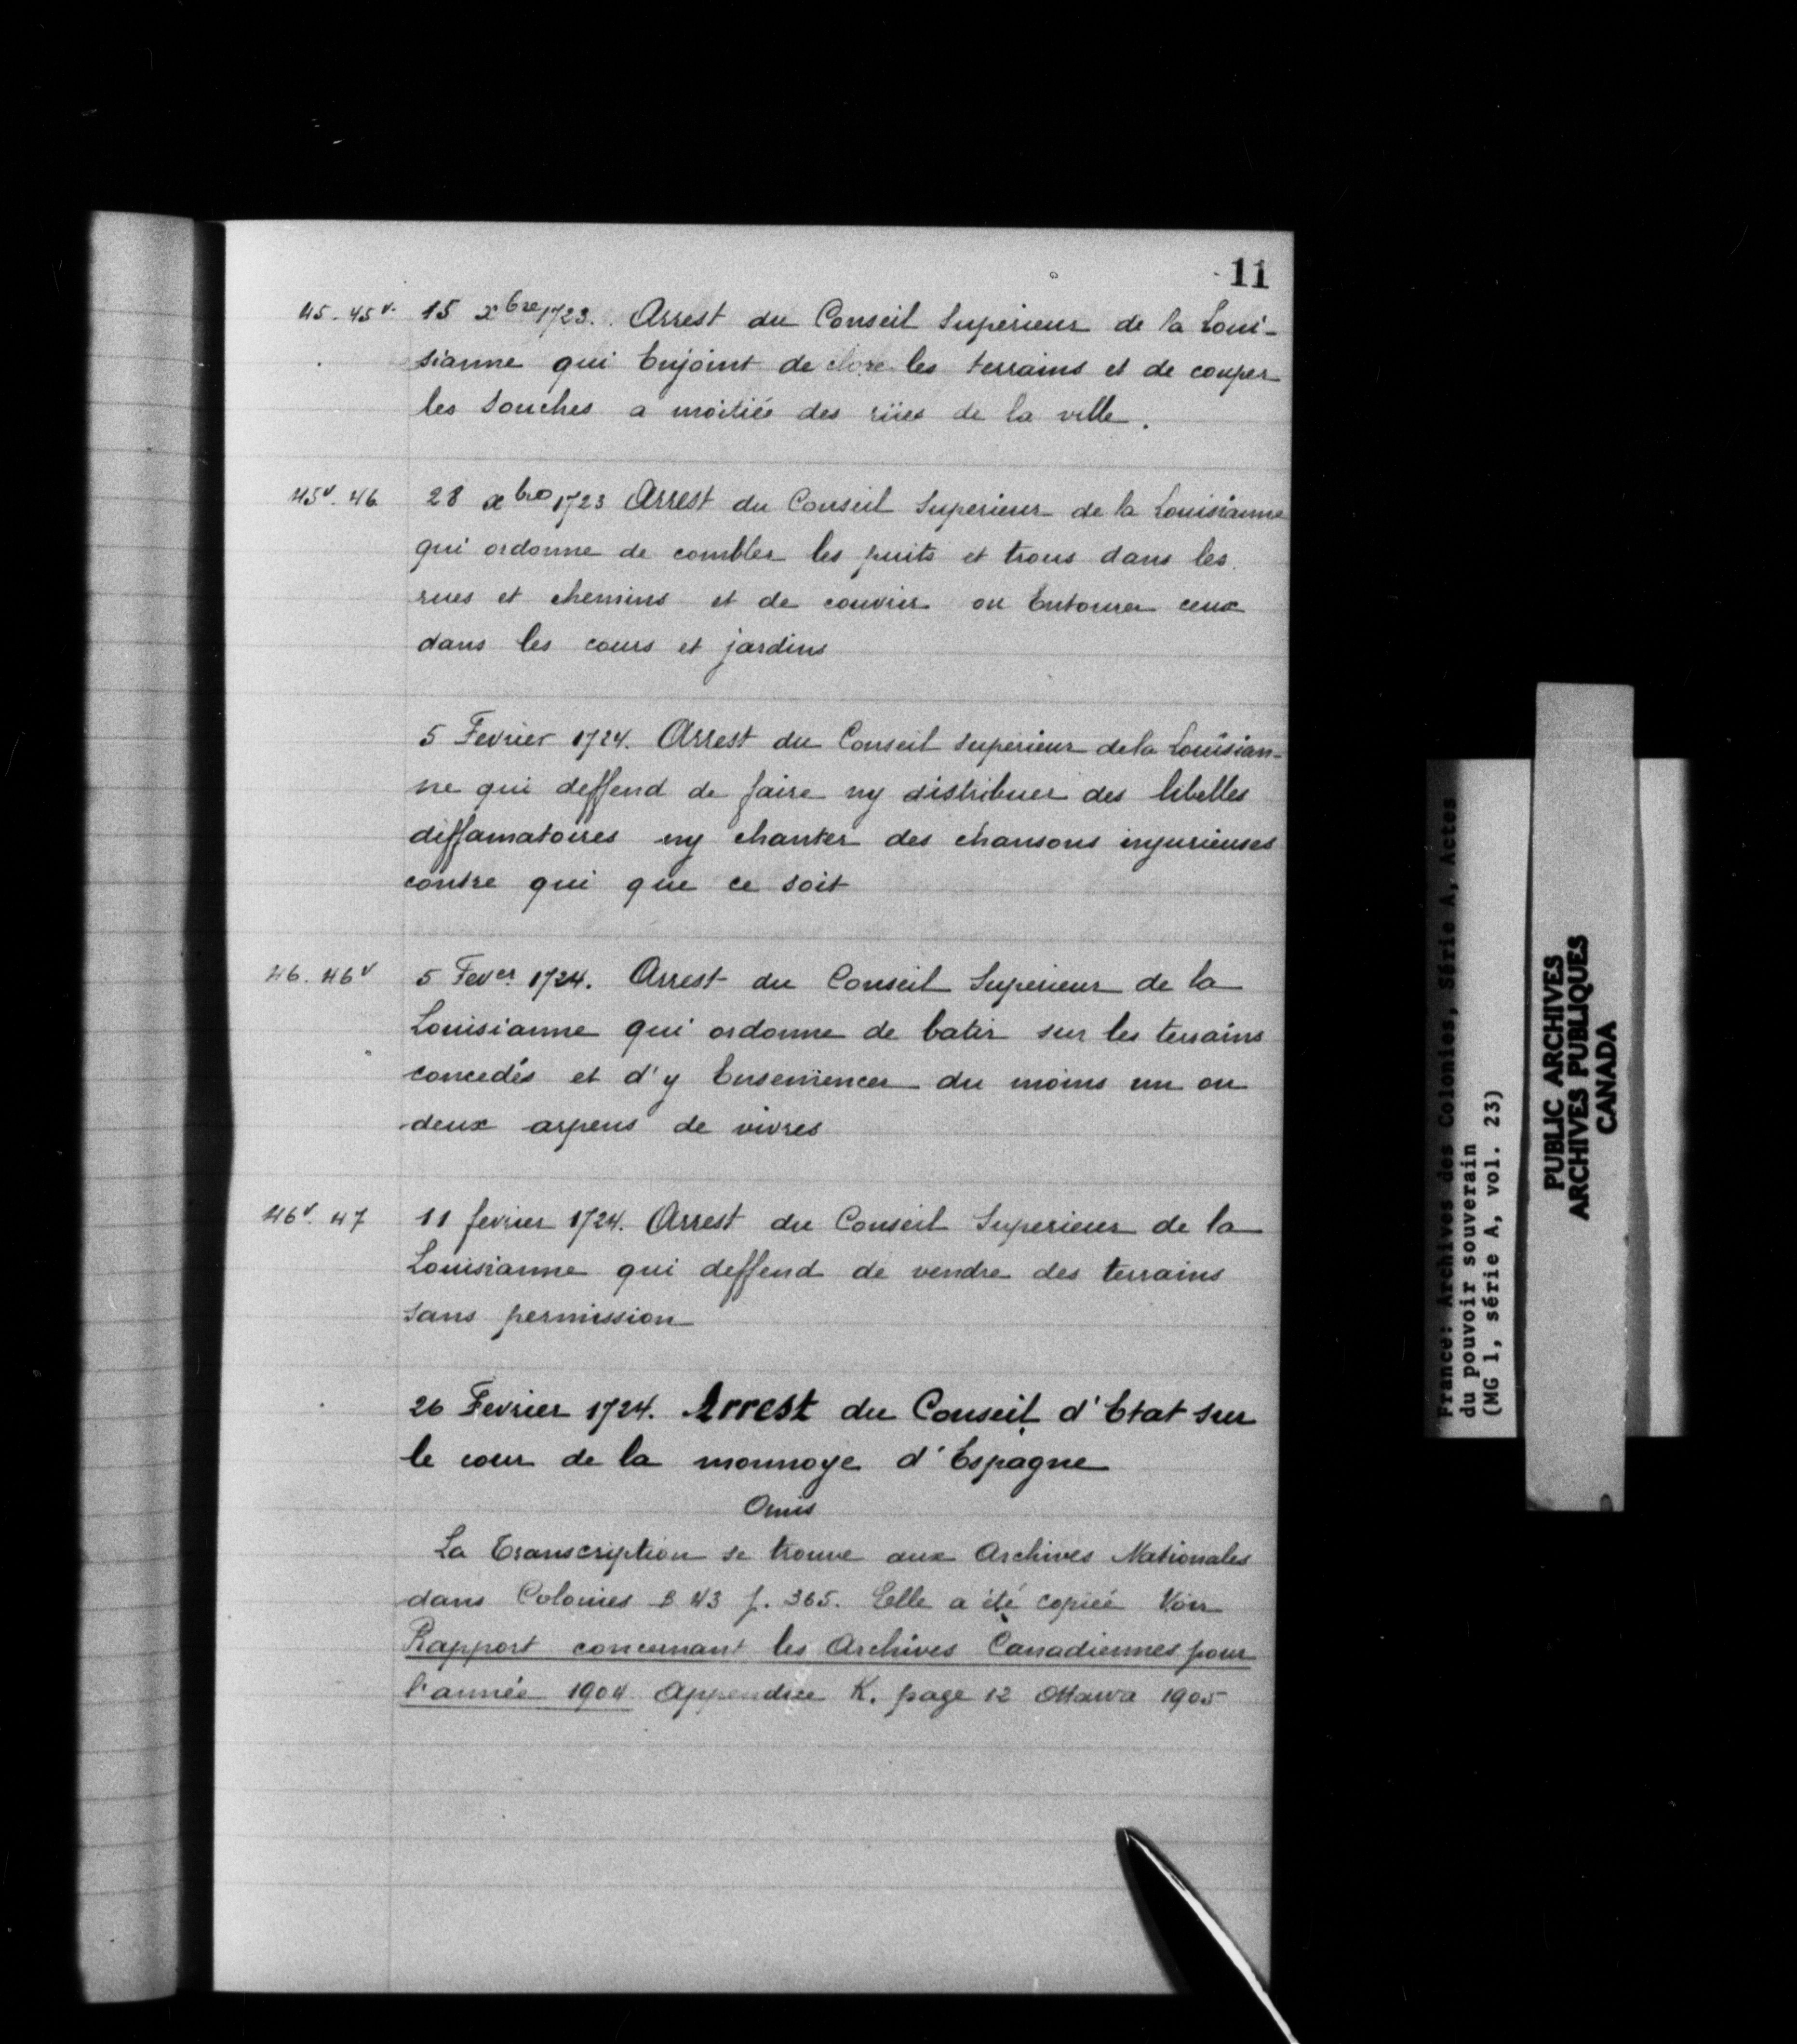 11
45. 45v. 15 xbre 1723. Arrest du Conseil Superieur de la Loui-
sianne qui Enjoint de clore les terrains et de couper
les souches a moitiée des rües de la ville.
45v. 46 28 xbre 1723 Arrest du Conseil Superieur de la Louisianne
qui ordonne de combler les puits et trous dans les
rues et chemins et de couvrir ou Entourer ceux
dans les cours et jardins
5 Fevrier 1724. Arrest du Conseil superieur de la Louisian-
ne qui deffend de faire ny distribuer des libelles
diffamatoires ny chanter des chansons injurieuses
contre qui que ce soit
46. 46v 5 Fever 1724. Arrest du Conseil Superieur de la
Louisianne qui ordonne de batir sur les terrains
concedés et d'y Ensemencer du moins un ou
deux arpens de vivres
46v. 47 11 fevrier 1724. Arrest du Conseil Superieur de la
Louisianne qui deffend de vendre des terrains
sans permission
26 Fevrier 1724. Arrest du Conseil d'Etat sur
le cour de la monnoye d'Espagne
Omis
La Transcription se trouve aux Archives Nationales
dans Colonies B 43 f. 365. Elle a été copiée Voir
Rapport concernant les Archives Canadiennes pour
l'année 1904 Appendice K. page 12 Ottawa 1905
France: Archives des Colonies, Série A, Actes
du pouvoir souverain
(MG 1, série A, vol. 23)
PUBLIC ARCHIVES
ARCHIVES PUBLIQUES
CANADA